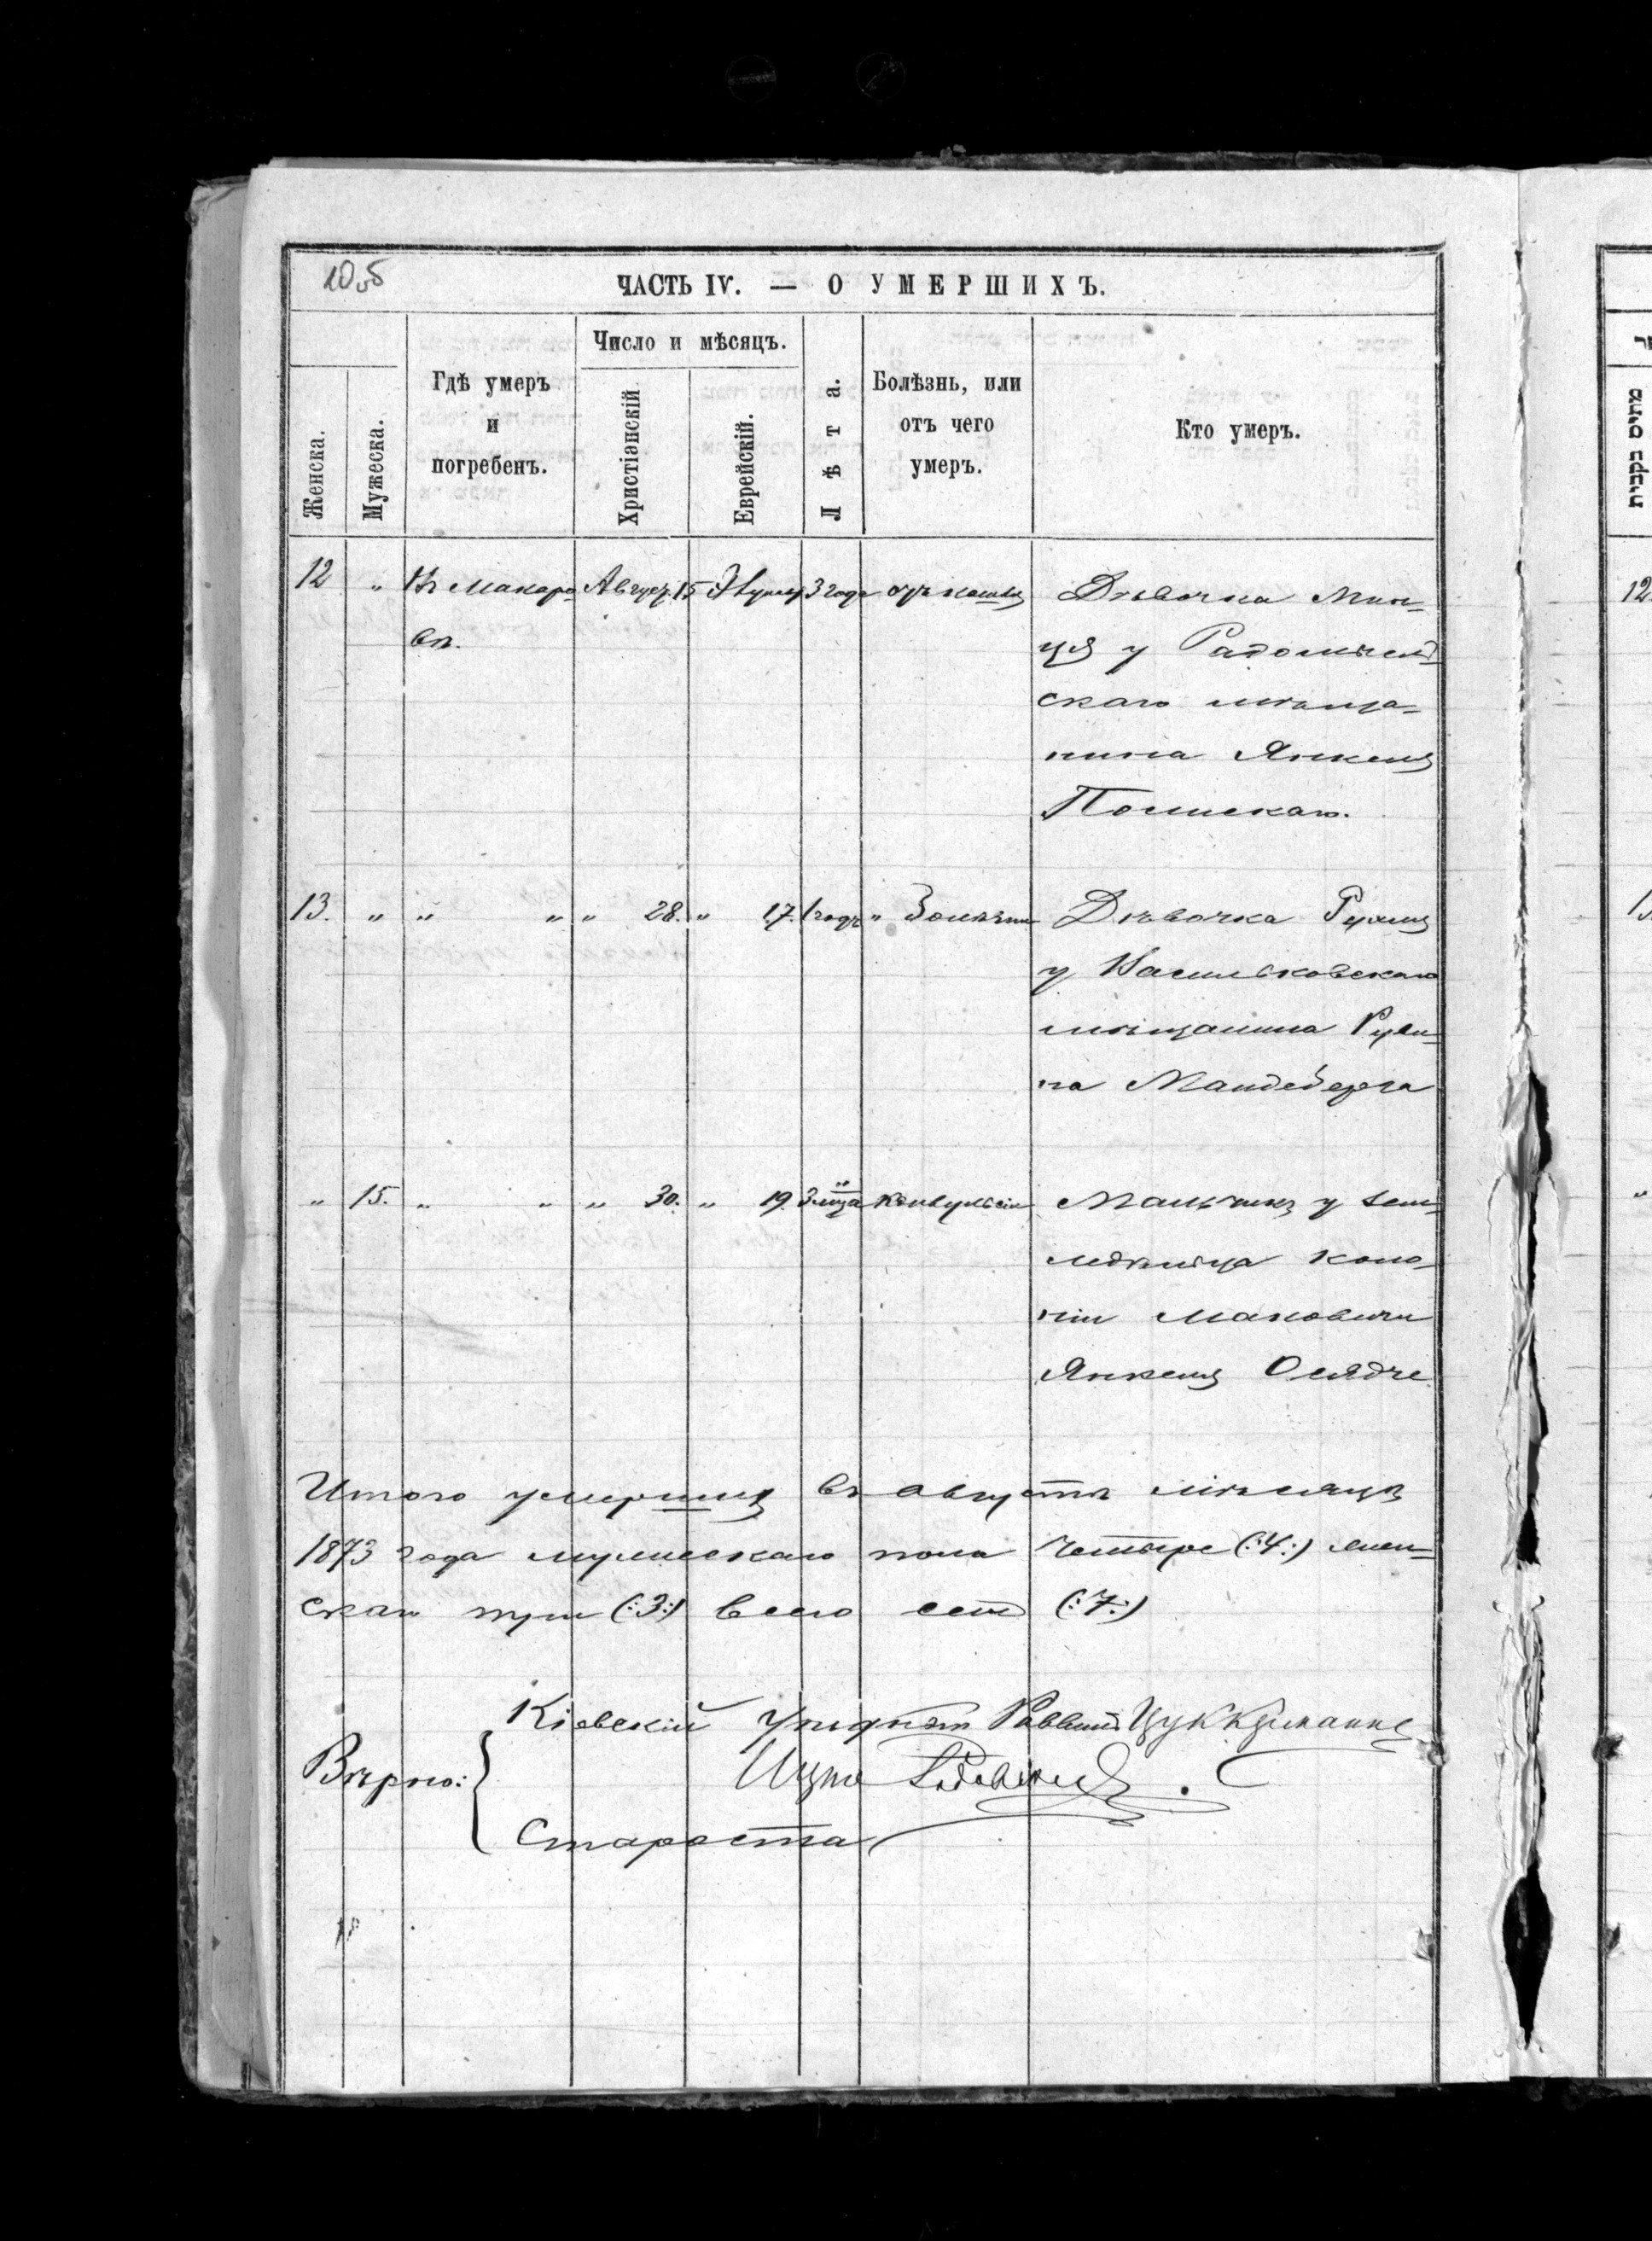 10об
ЧАСТЬ IV. — О УМЕРШИХЪ.
Женска.
Мужеска.
Гдѣ умеръ
и
погребенъ.
Число и мѣсяцъ.
Христіанскій
Еврейскій.
Лѣта.
Болѣзнь, или
отъ чего
умеръ.
Кто умеръ.
12 " Въ Макаро- Август. 15 3 года отъ кашля Дѣвочка Мин-
вѣ.
ця у Радомысль-
скаго мѣща-
нина Янкеля
Полискаго.
13. " " " " 28. " 17. 1 годъ " Дѣвочка Рухля
у Васильковскаго
мѣщанина Руви-
на Мандеберга
" 15. " " " 30. " 19. 3 мѣца Конвульсіи Мальчикъ у зем-
ледѣльца коло-
ніи Маковичи
Янкеля Осядче
Итого умершихъ въ августѣ мѣсяцѣ
1873 года мужескаго пола четыре (:4:) жен-
скаго три (:3:) всего семь (:7:)
Кіевскій Уѣздный Раввинъ Цуккерманъ
Вѣрно:
Ицко
Староста
12